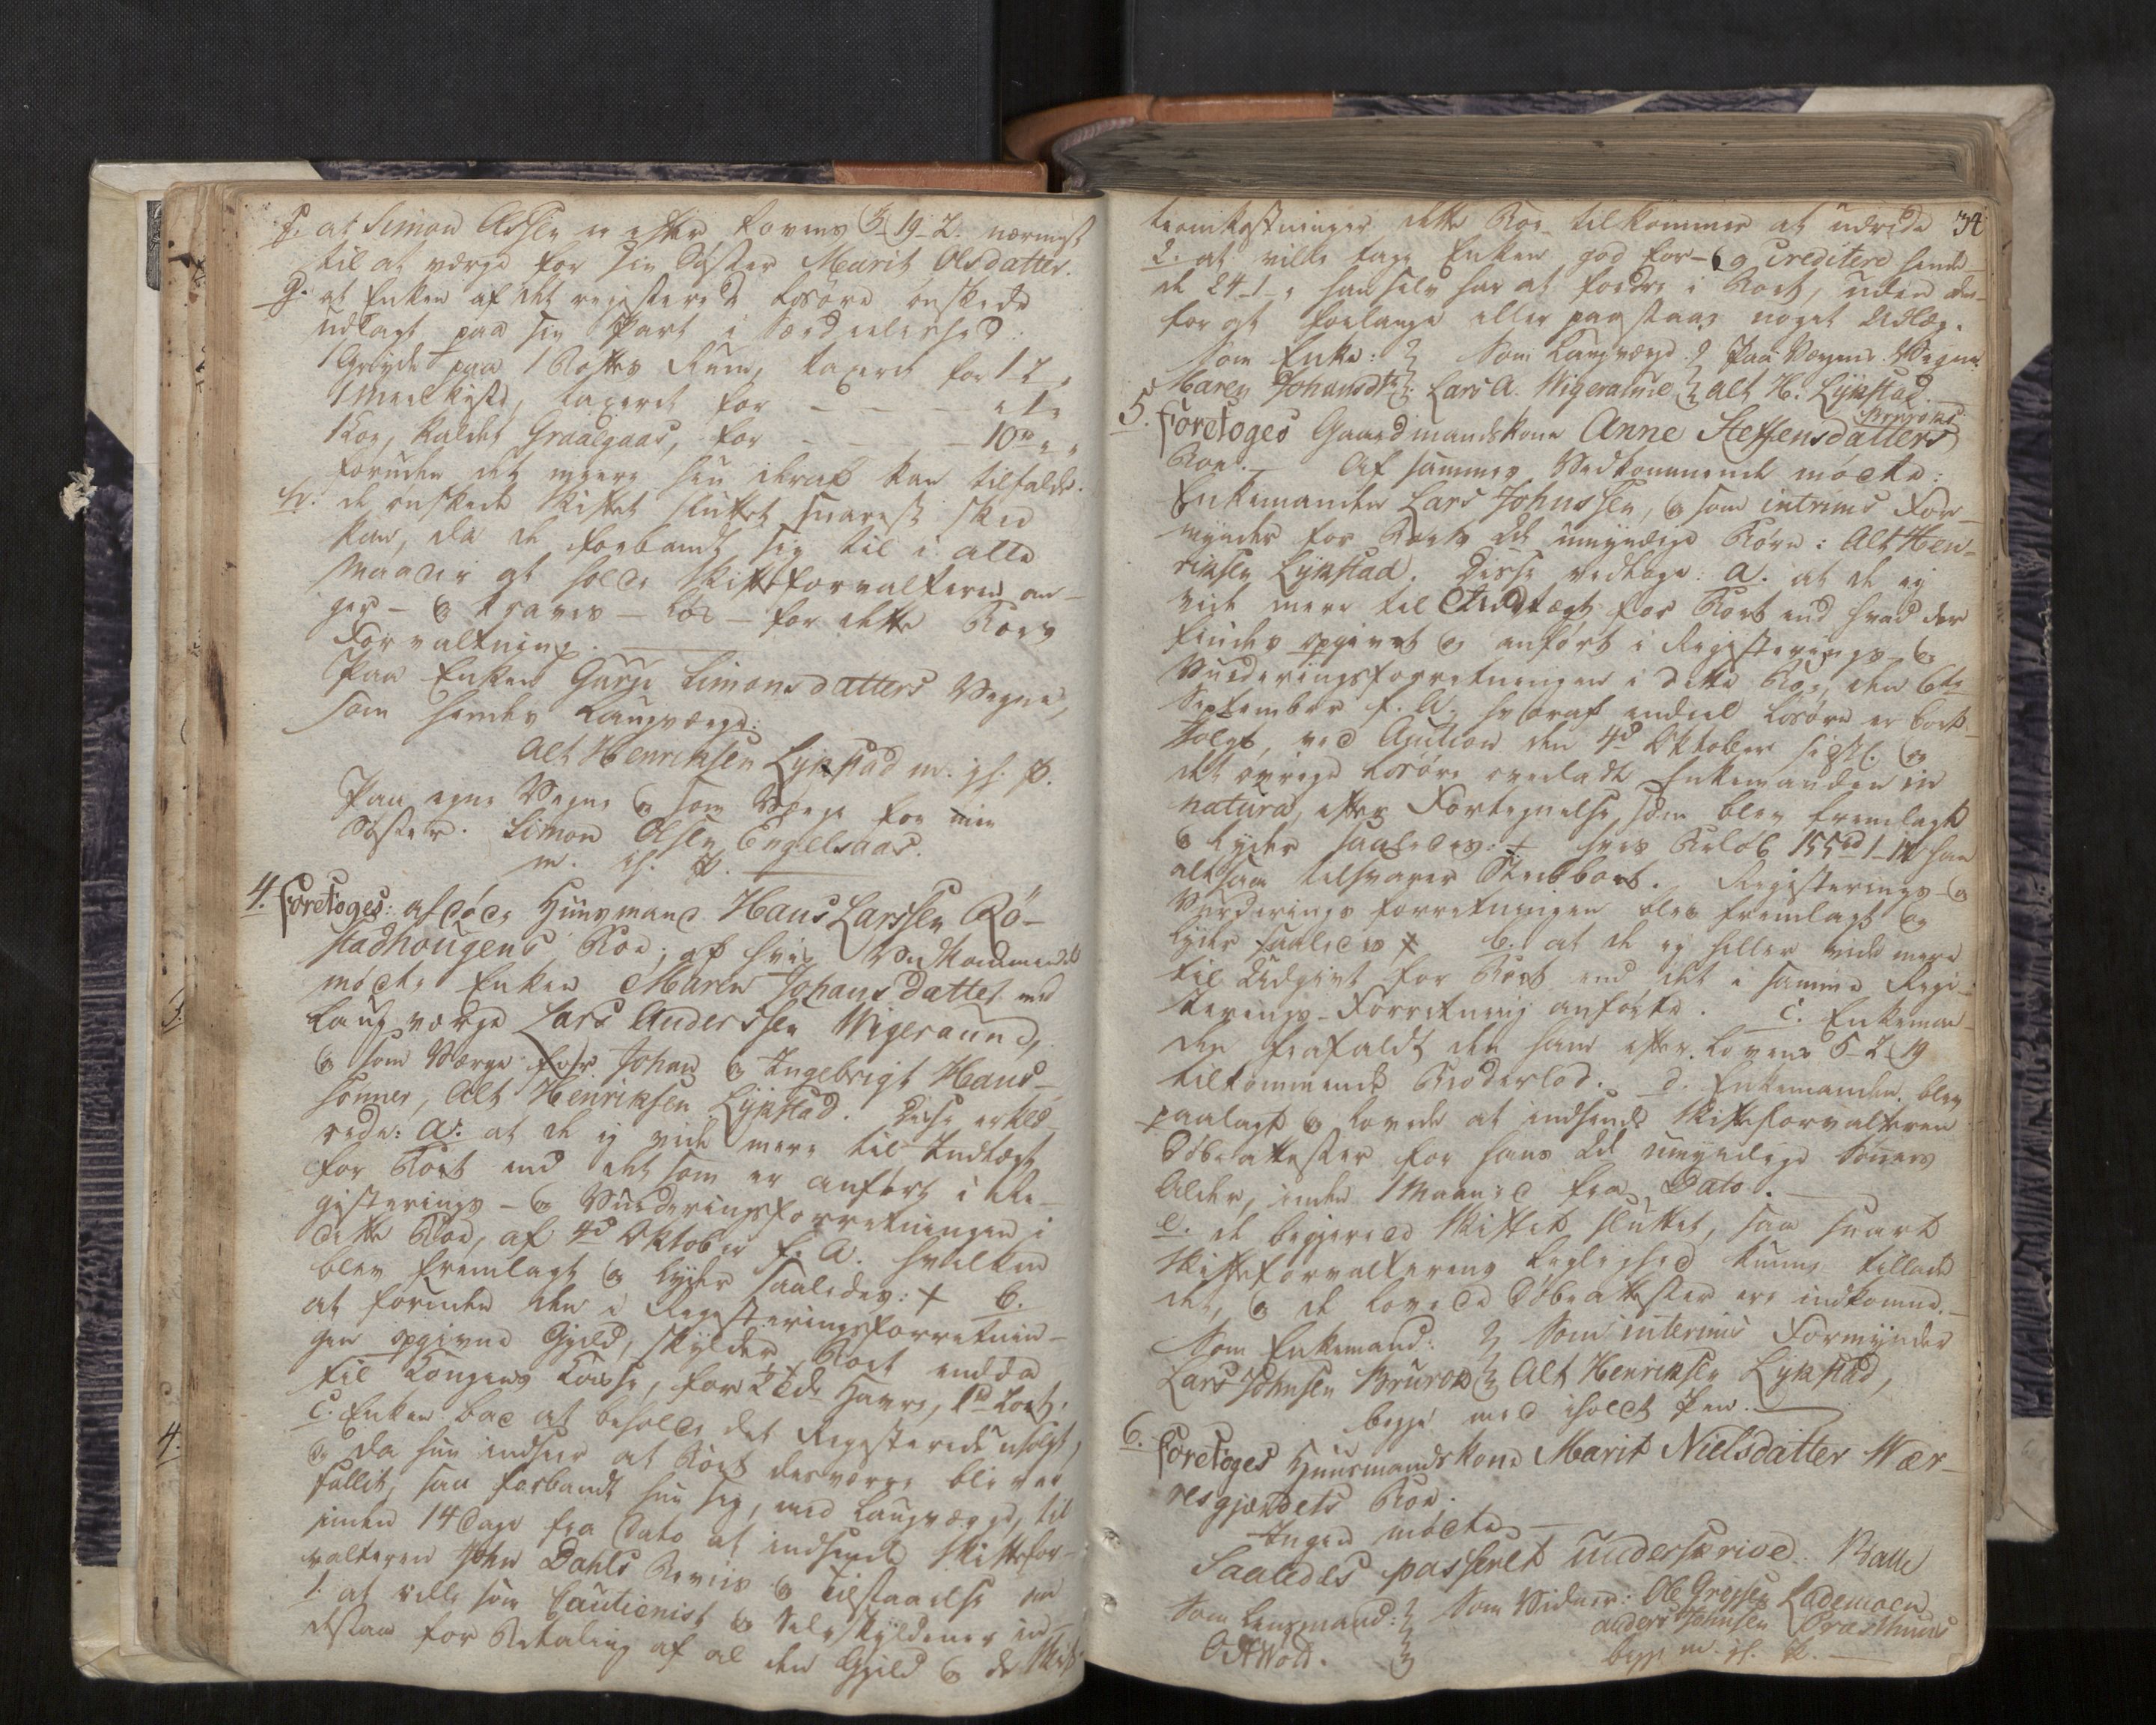 f. at Simon Olsen er efter Lovens 3-19-2. nærmest
til at værge for sin Søster Marit Olsdatter.
g. at Enken af det registerede Løsøre ønskede
udlagt paa sin Part i Særdeleshed:
1 Gryde paa 1 Bøttes Rum, taxeret for 1-2-"
1 Meelkiste, taxeret for - - - " 1 "
1 Koe, kaldet Graagaas, for - - - 10 " "
foruden det meere hun ikraft kan tilfalde.
h. de ønskede Skiftet sluttet snarest skee
kan, da de forbandt sig til i alle
Maader at holde Skifteforvalteren an-
ger- og kraves-løs- for dette Boes
Forvaltning.
Paa Enken Gurje Simonsdatters Vegne,
som hendes Laugværge:
Alt Henriksen Lykstad m. ih. P.
Paa egne Vegne og som Værge for min
Søster. Simon Olsen Engelsaas.
m. ih. P.
4. Foretoges: afdøde Huusmand Hans Larssen Rø-
stadhougens Boe; af hvis Vedkommende
mødte Enken Maren Johansdatter med
Laugværge Lars Anderssen Wigeraund,
og som Værge for Johan og Ingebrigt Hans-
sønner, Alt Henriksen Lykstad. Disse erklæ-
rede: a. at de ej vide mere til Indtægt
for Boet end det som er anført i Re-
gisterings- og Vurderingsforretningen i
dette Boe, af 4d Oktober f. A. hvilken
blev fremlagt og lyder saaledes: + b.
at foruden den i Registeringsforretnin-
gen opgivne Gjeld, skylder Boet endda
til Kongens Kasse, for Tde Havre, 1d Kort.
c. Enken bad at beholde det Registerede usolgt,
og da hun indseer at Boet desværre bliver
fallit, saa forbandt hun sig, med Laugværge, til
inden 14 Dage fra Dato at indsende Skiftefor-
valteren John Dahls Beviis og Tilstaaelse om
1. at ville som Cautionist og Selvskyldener ind-
estaa for Betaling af al den Gjeld og de Skif-
teomkostninger dette Boe tilkommer at udrede 34
2. at ville tage Enken god for- og creditere hende
de 24-1-" han selv har at fordre i Boet, uden der-
for at forlange eller paastaae noget Udlæg.
Som Enke: Som Laugværge. Paa Værgens Vegne.
Maren Johansdtr. Lars A. Wigeraund Alt H. Lykstad.
5. Foretoges Gaardmandskone Anne Steffensdatters Bruroks
Boe. Af sammes Vedkommende mødte:
Enkemanden Lars Johnssen, og som intrims For-
mynder for Boets umyndige Børn: Alt Hen-
riksen Lykstad. Disse vedtoge: a. at de ej
vide mere til Indtægt for Boet end hvad der
findes opgivet og anført i Registerings- og
Vurderingsforretningen i dette Boe, den 6te
September f. A., hvoraf endeel Løsøre er bort-
solgt, ved Auction den 4d Oktober sidstl. og
det øvrige Løsøre overladt Enkemanden in
natura, efter Fortegnelse, som blev fremlagt
og lyder saaledes: + hvis Beløb 155rd 1- han
altsaa tilsvarer Sterboet. Registerings- og
Vurderings forretningen blev fremlagt og
lyder saaledes + b. at de ej heller vide mere
til Udgivt for Boet end det i samme Regi-
sterings-Forretning anførte. c. Enkeman-
den frafaldt den ham efter Lovens 5-2-19
tilkommende Broderlod. d. Enkemanden blev
paalagt og lovede at indsende Skifteforvalteren
Døbeattester for hans umyndige Sønners
Alder, inden 1 Maaned fra Dato.
e. de begjerede Skiftet sluttet, saa snart
Skifteforvalterens Leilighed kunne tillade
det, og de lovede Døbeattester ere indkomne.
Som Enkemand: Som interims Formynder
Lars Johnsen Brurok Alt Henriksen Lykstad,
begge med iholdt Pen.
6. Foretoges Huusmandskone Marit Nielsdatter Wær-
resgjærdets Boe.
Ingen mødte.
Saaledes passeret underskrive: Balle
Som Lensmand: Som Vidner: Ole Grejssen Lademoen
O. A. Wold. anders Johnsen Præsthuus
begge m. ih. P.
4.